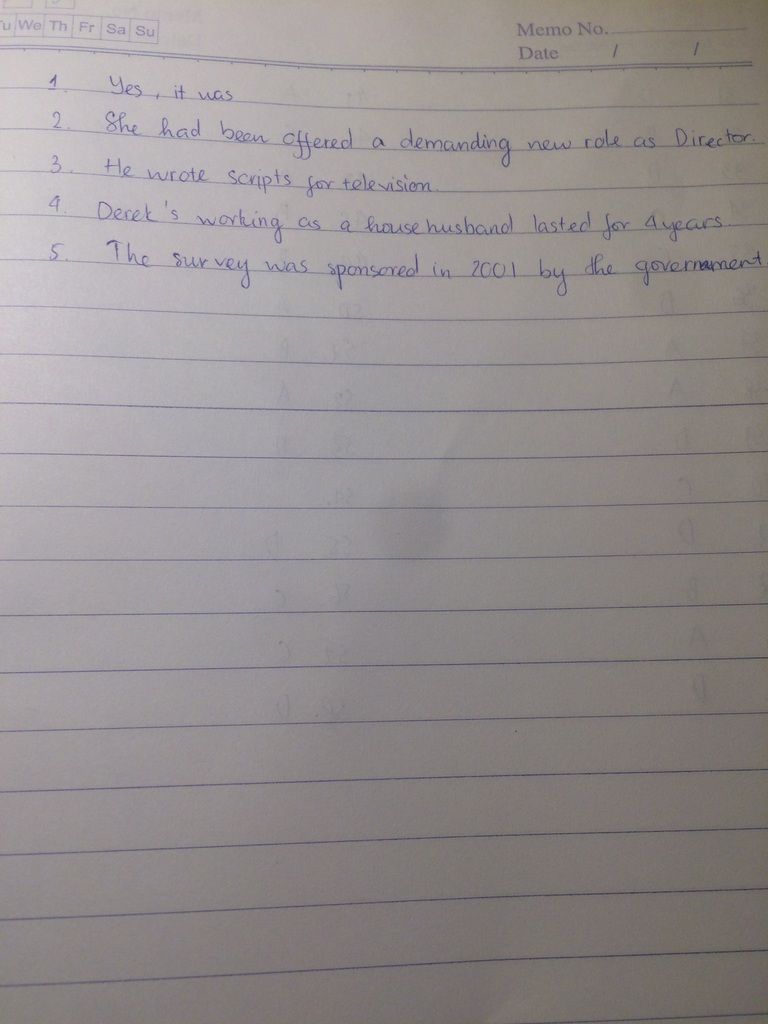 Tu We Th Fr Sa Su
Memo No.
Date / /
1. Yes, it was
2. She had been offered a demanding new role as Director.
3. He wrote scripts for television.
4. Derek's working as a house husband lasted for 4 years.
5. The survey was sponsored in 2001 by the government.